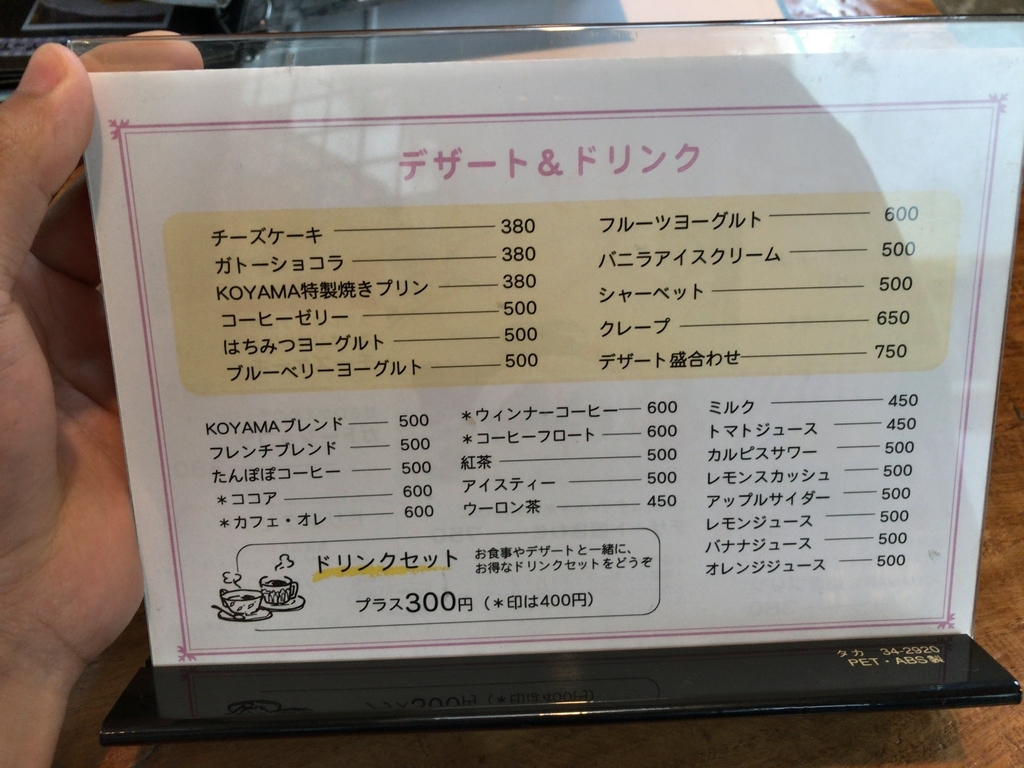 デザート&ドリンク
チーズケーキ 380
ガトーショコラ 380
KOYAMA特製焼きプリン 380
コーヒーゼリー 500
はちみつヨーグルト 500
ブルーベリーヨーグルト 500
フルーツヨーグルト 600
バニラアイスクリーム 500
シャーベット 500
クレープ 650
デザート盛合わせ 750
KOYAMAブレンド 500
フレンチブレンド 500
たんぽぽコーヒー 500
*ココア 600
*カフェ・オレ 600
*ウィンナーコーヒー 600
*コーヒーフロート 600
紅茶 500
アイスティー 500
ウーロン茶 450
ミルク 450
トマトジュース 450
カルピスサワー 500
レモンスカッシュ 500
アップルサイダー 500
レモンジュース 500
バナナジュース 500
オレンジジュース 500
ドリンクセット
お食事やデザートと一緒に、
お得なドリンクセットをどうぞ
プラス300円(*印は400円)
タカ 34-2920
PET・ABS製